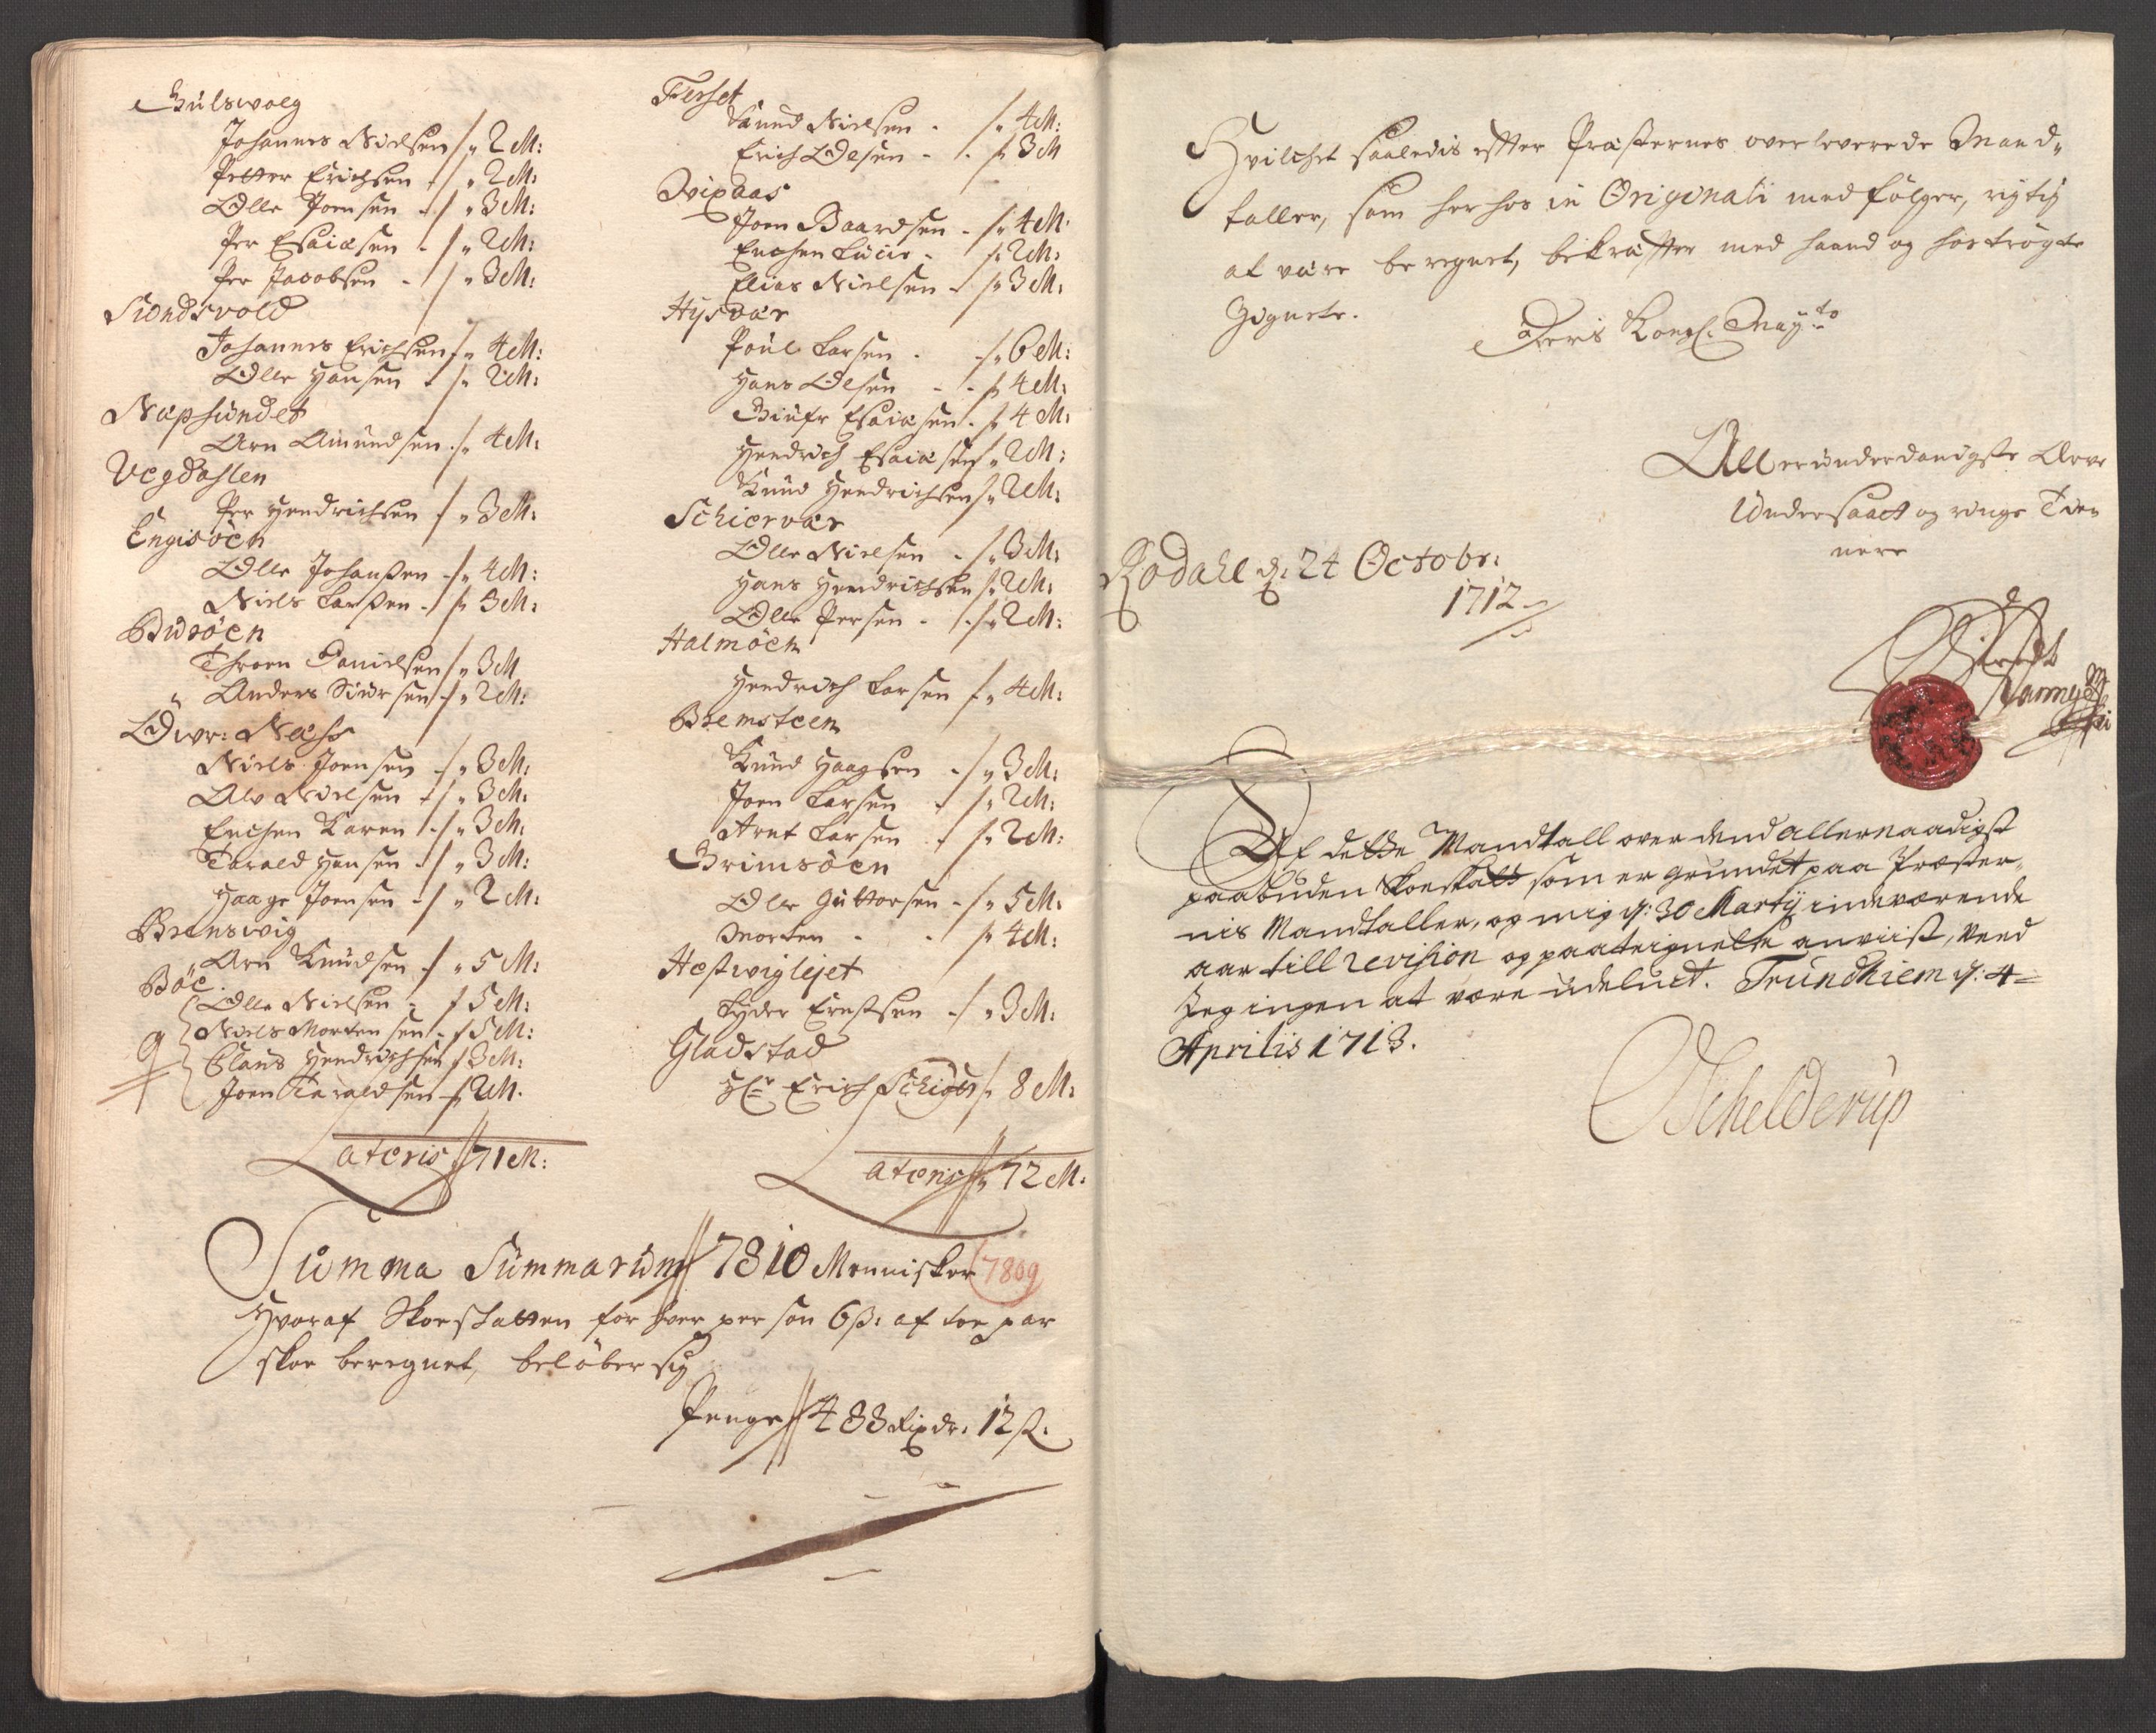 Gulsvog
Johannes Nielsen /„ 2 M:
Petter Erichsen /„ 2 M:
Olle Joensen /„ 3 M:
Per Esaiæsen - /„ 2 M:
Per Jacobsen - /„ 3 M:
Sundsvold
Johannes Erichsen /„ 4 M:
Olle Hansen - /„ 2 M:
Næpsundet
Arn Amundsen /„ 4 M:
Vegdahlen
Per Hendrichsen /„ 3 M:
Engisöen
Olle Johanßen - /„ 4 M:
Niels Larßen - /„ 3 M:
Buröen
Throen Danielsen /„ 3 M
Anders Siursen /„ 2 M:
Öwr: Næss
Niels Joensen - /„ 3 M:
Alv Nielsen - /„ 3 M:
Enchen Karen - /„ 3 M:
Tarald Hansen - /„ 3 M:
Haage Joensen - /„ 2 M:
Brenswig
Arn Knudsen - /„ 5 M:
Böe
Olle Nielsen - / 5 M:
Niels Mortensen - / 5 M:
9 Claus Hendrichsen / 3 M:
Joen Taraldsen / 2 M.
Lateris // 71 M:
Ferset
Knud Nielsen - /„ 4 M:
Erich Olesen - - /„ 3 M
Qvixaas
Joen Baardsen - /„ 4 M:
Enchen Lucie - /„ 2 M:
Elias Nielsen - /„ 3 M:
Hysvær
Poul Larsen - - /„ 6 M:
Hans Olsen - - /„ 4 M:
Giufr Esaiæsen - /„ 4 M:
Hendrich Esaiæsen /„ 2 M:
Knud Hendrichsen /„ 2 M:
Schiervær
Olle Nielsen - /„ 3 M:
Hans Hendrichsen /„ 2 M:
Olle Persen - - /„ 2 M:
Halmöen
Hendrich Larsen /„ 4 M:
Bremsteen
Knud Haagsen - /„ 3 M:
Joen Larsen - /„ 2 M:
Arnt Larsen - /„ 2 M:
Grimsöen
Olle Guttorsen - /„ 5 M:
Morten - - /„ 4 M:
Hestwiglejet
Lyder Ernstsen - /„ 3 M:
Gladstad
Hr Erich Schiger /„ 8 M:
Lateris //„ 72 M:
Summa Summarum // 7810 Mennisker 7809
Hvoraf Skoeskatten for hver person 6 ß: af toe par
skoe beregnet, beløber sig
Penge // 488 Rixdr: 12 ß.
Hvilchet saaledis efter Præsternes overleverede Mand„
taller, som herhos in Originali medfølger, rigtig
at være beregnet, bekræfter med haand og hoströgte
Zignete.
Deris Kongl: Mayto
Allerunderdanigste Arve
Undersaat og ringe Tien
nere
Rodahl d: 24 Octobr:
1712
Af dette Mandtall over dend allernaadigst
paabuden Skoeskatt som er grundet paa Præster„
nis Mandtaller, og mig d: 30 Martij indeværende
aar till revision og paateignelse anviist, veed
Jeg ingen at være udeluct. Trundhiem d: 4
Aprilis 1713.
Schelderup